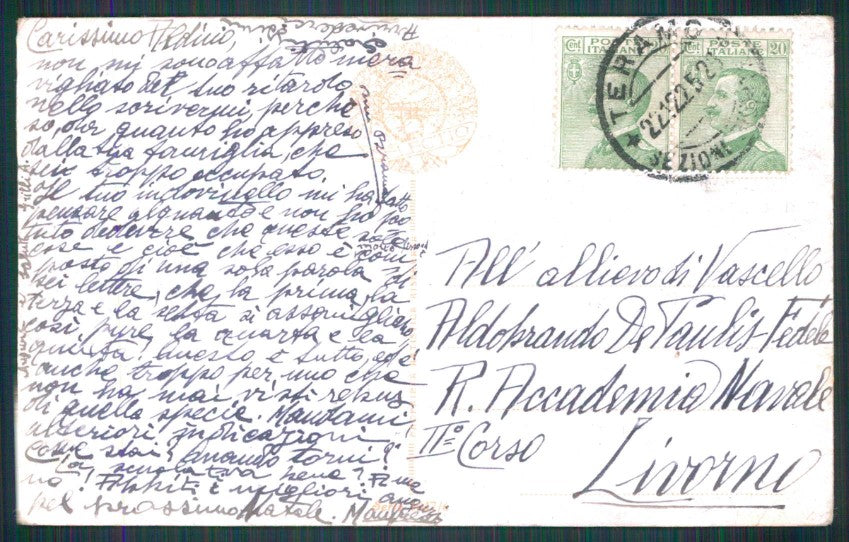 Carissimo Aldino,
non mi sono affatto mera
vigliato del tuo ritardo
nello scrivermi, perchè
so, per quanto ho appreso
dalla tua famiglia, che
sei troppo occupato.
Il tuo indovinello mi ha fatto
pensare alquanto e non ho po
tuto dedurre che queste
cose e cioè che esso è com
posto di una sola parola di
sei lettere, che la prima, la
terza e la sesta si assomigliano
così pure la quarta e la
quinta. Questo è tutto, ed è
anche troppo per uno che
non ha mai visti rebus
di quella specie. Mandami
ulteriori
Come stai? Quando torni?
La scuola va bene?
no! i migliori
pel prossimo Natale.
POSTE
ITALIANE
Cent.
POSTE
ITALIANE
Cent. 20
TERAMO
SEZIONI
All' allievo di Vascello
Aldobrando De Paulis-Fedele
R. Accademia Navale
IIº Corso
Livorno